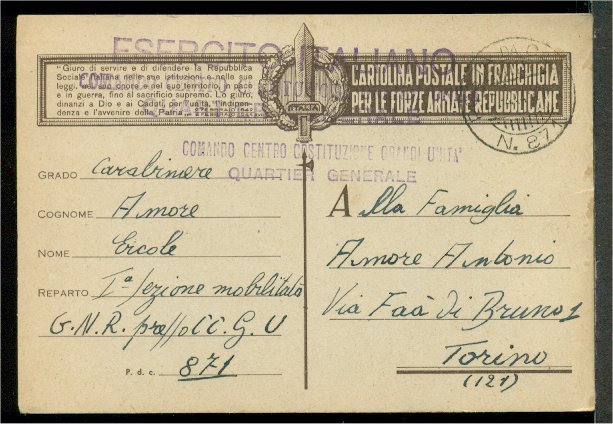 ESERCITO ITALIANO
"Giuro di servire e di difendere la Repubblica
Sociale Italiana nelle sue istituzioni e nelle sue
leggi, nel suo onore e nel suo territorio, in pace
e in guerra, fino al sacrificio supremo. Lo giuro,
dinanzi a Dio e ai Caduti, per l'unità, l'indipen-
denza e l'avvenire della Patria
ITALIA
CARTOLINA POSTALE IN FRANCHIGIA
PER LE FORZE ARMATE REPUBBLICANE
N. 871
COMANDO CENTRO COSTITUZIONE GRANDI UNITA'
QUARTIER GENERALE
GRADO Carabiniere
COGNOME Amore
NOME Ercole
REPARTO Iª Sezione mobilitata
G.N.R. presso C.C.G.U
P. d. c. 871
Alla Famiglia
Amore Antonio
Via Faà di Bruno 1
Torino
(121)